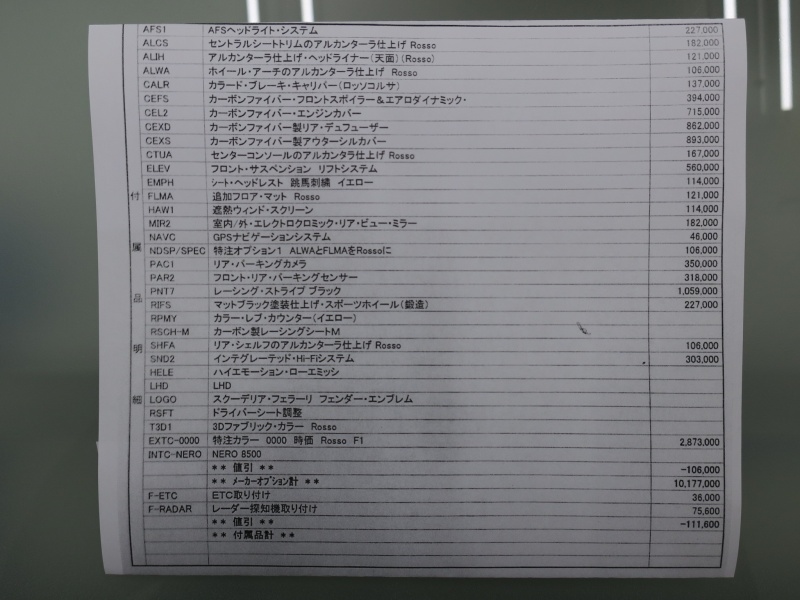 AFS1 AFSヘッドライト・システム 227,000
ALCS セントラルシートトリムのアルカンターラ仕上げ Rosso 182,000
ALIH アルカンターラ仕上げ・ヘッドライナー(天面)(Rosso) 121,000
ALWA ホイール・アーチのアルカンターラ仕上げ Rosso 106,000
CALR カラード・ブレーキ・キャリパー(ロッソコルサ) 137,000
CEFS カーボンファイバー・フロントスポイラー＆エアロダイナミック・ 394,000
CEL2 カーボンファイバー・エンジンカバー 715,000
CEXD カーボンファイバー製リア・デュフューザー 862,000
CEXS カーボンファイバー製アウターシルカバー 893,000
CTUA センターコンソールのアルカンタラ仕上げ Rosso 167,000
ELEV フロント・サスペンション リフトシステム 560,000
EMPH シート・ヘッドレスト 跳馬刺繍 イエロー 114,000
付 FLMA 追加フロア・マット Rosso 121,000
HAW1 遮熱ウィンド・スクリーン 114,000
MIR2 室内/外・エレクトロクロミック・リア・ビュー・ミラー 182,000
NAVC GPSナビゲーションシステム 46,000
属 NDSP/SPEC 特注オプション1 ALWAとFLMAをRossoに 106,000
PAC1 リア・パーキングカメラ 350,000
PAR2 フロント・リア・パーキングセンサー 318,000
品 PNT7 レーシング・ストライプ ブラック 1,059,000
RIFS マットブラック塗装仕上げ・スポーツホイール(鍛造) 227,000
RPMY カラー・レブ・カウンター(イエロー)
RSCH-M カーボン製レーシングシートM
明 SHFA リア・シェルフのアルカンターラ仕上げ Rosso 106,000
SND2 インテグレーテッド・Hi-Fiシステム 303,000
HELE ハイエモーション・ローエミッシ
LHD LHD
細 LOGO スクーデリア・フェラーリ フェンダー・エンブレム
RSFT ドライバーシート調整
T3D1 3Dファブリック・カラー Rosso
EXTC-0000 特注カラー 0000 時価 Rosso F1 2,873,000
INTC-NERO NERO 8500
** 値引 ** -106,000
** メーカーオプション計 ** 10,177,000
F-ETC ETC取り付け 36,000
F-RADAR レーダー探知機取り付け 75,600
** 値引 ** -111,600
** 付属品計 **